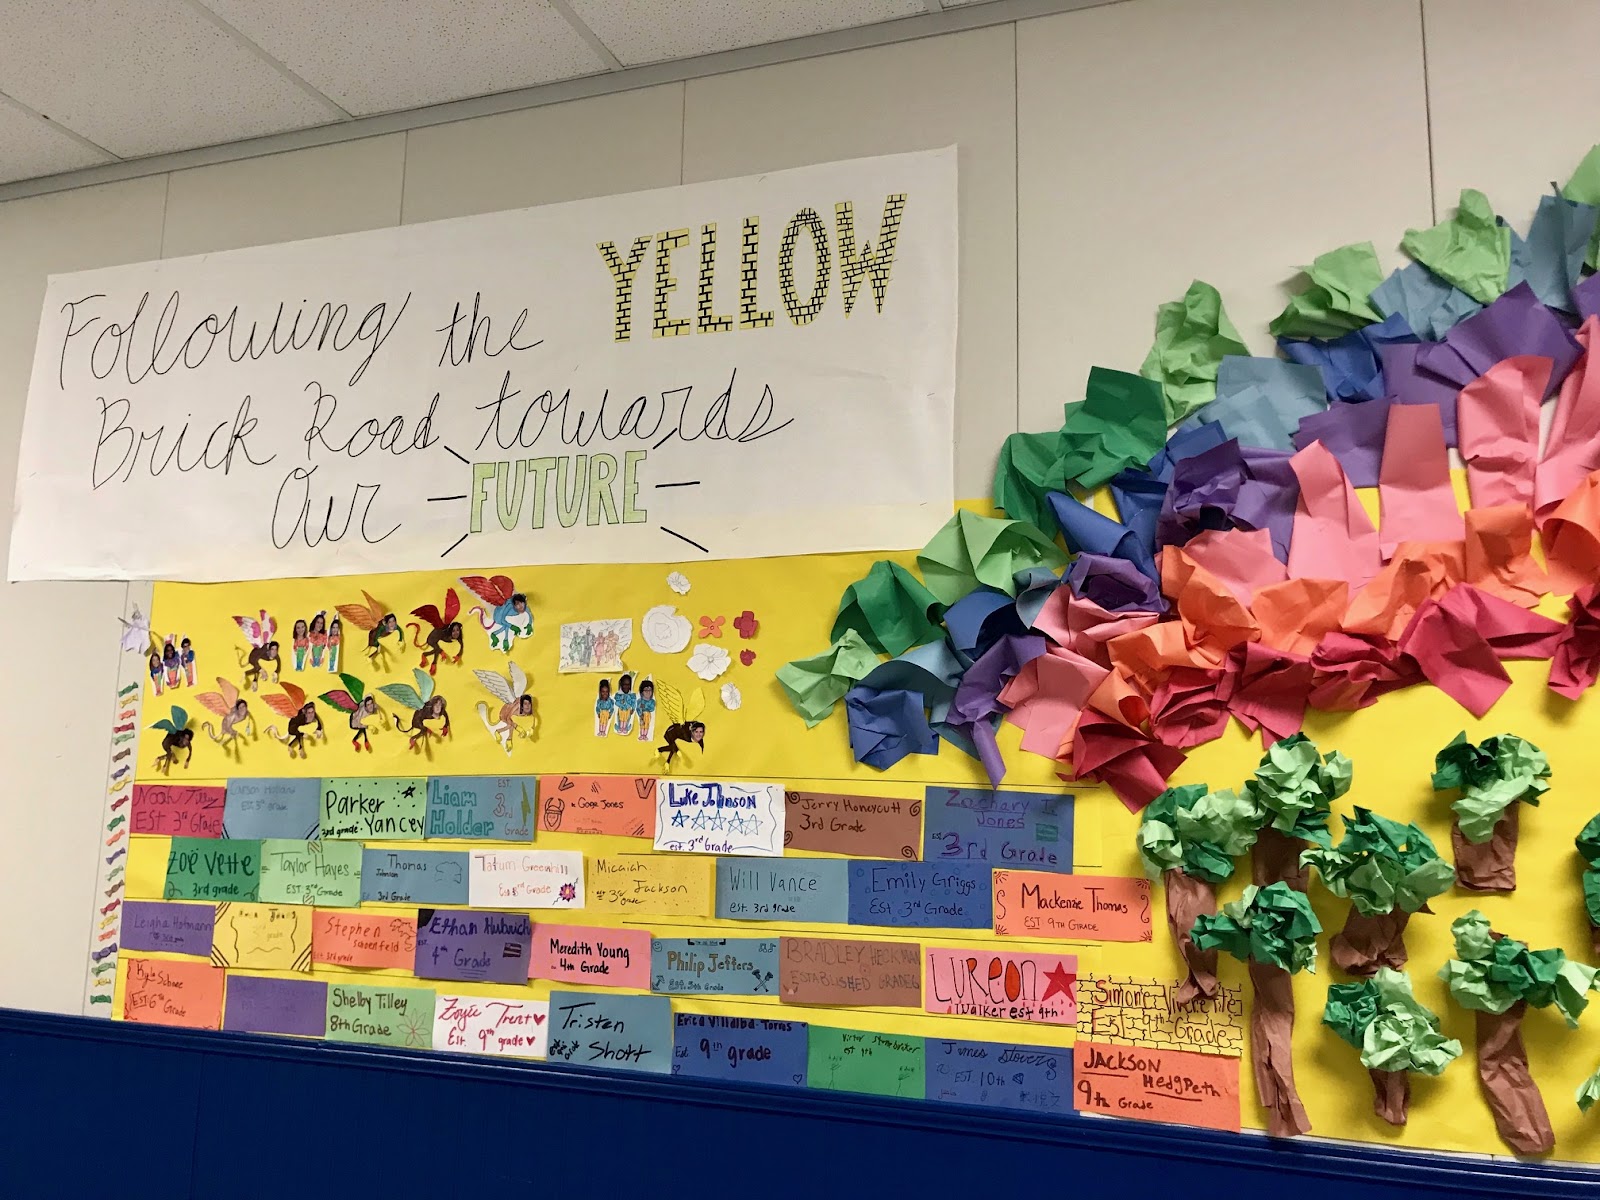 Following the YELLOW
Brick Road towards
Our FUTURE
Noah Tilley
Est 3rd Grade
Carson
Est 3rd grade
Parker
3rd grade Yancey
Liam
Holder
EST.
3rd
Grade
Gage Jones
Luke Johnson
est. 3rd Grade
Jerry Honeycutt
3rd Grade
Zachary T.
Jones
3rd Grade
Zoë Vette
3rd grade
Taylor Hayes
EST. 3rd Grade
Thomas
Johnson
3rd Grade
Tatum Greenhill
Est 3rd Grade
Micaiah
Jackson
Will Vance
est. 3rd grade
Emily Griggs
Est 3rd Grade
Mackenzie Thomas
EST. 9th Grade
Leigha Hofmann
3rd grade
grade
Stephen
est. 3rd grade
Ethan Hubrich
est.
4th Grade
Meredith Young
4th Grade
Philip Jeffers
Est. 5th Grade
BRADLEY HECKMAN
ESTABLISHED GRADE 6
LUREON
Walker est 9th
Simone
Est. 9th Grade
Kyle
EST 6th Grade
Shelby Tilley
8th Grade
Zoyie Trent
Est. 9th grade
Tristan
Shott
Erica Villalba-Torres
Est 9th grade
Victor
est
James Stovers
EST. 10th
JACKSON
Hedgpeth
9th Grade